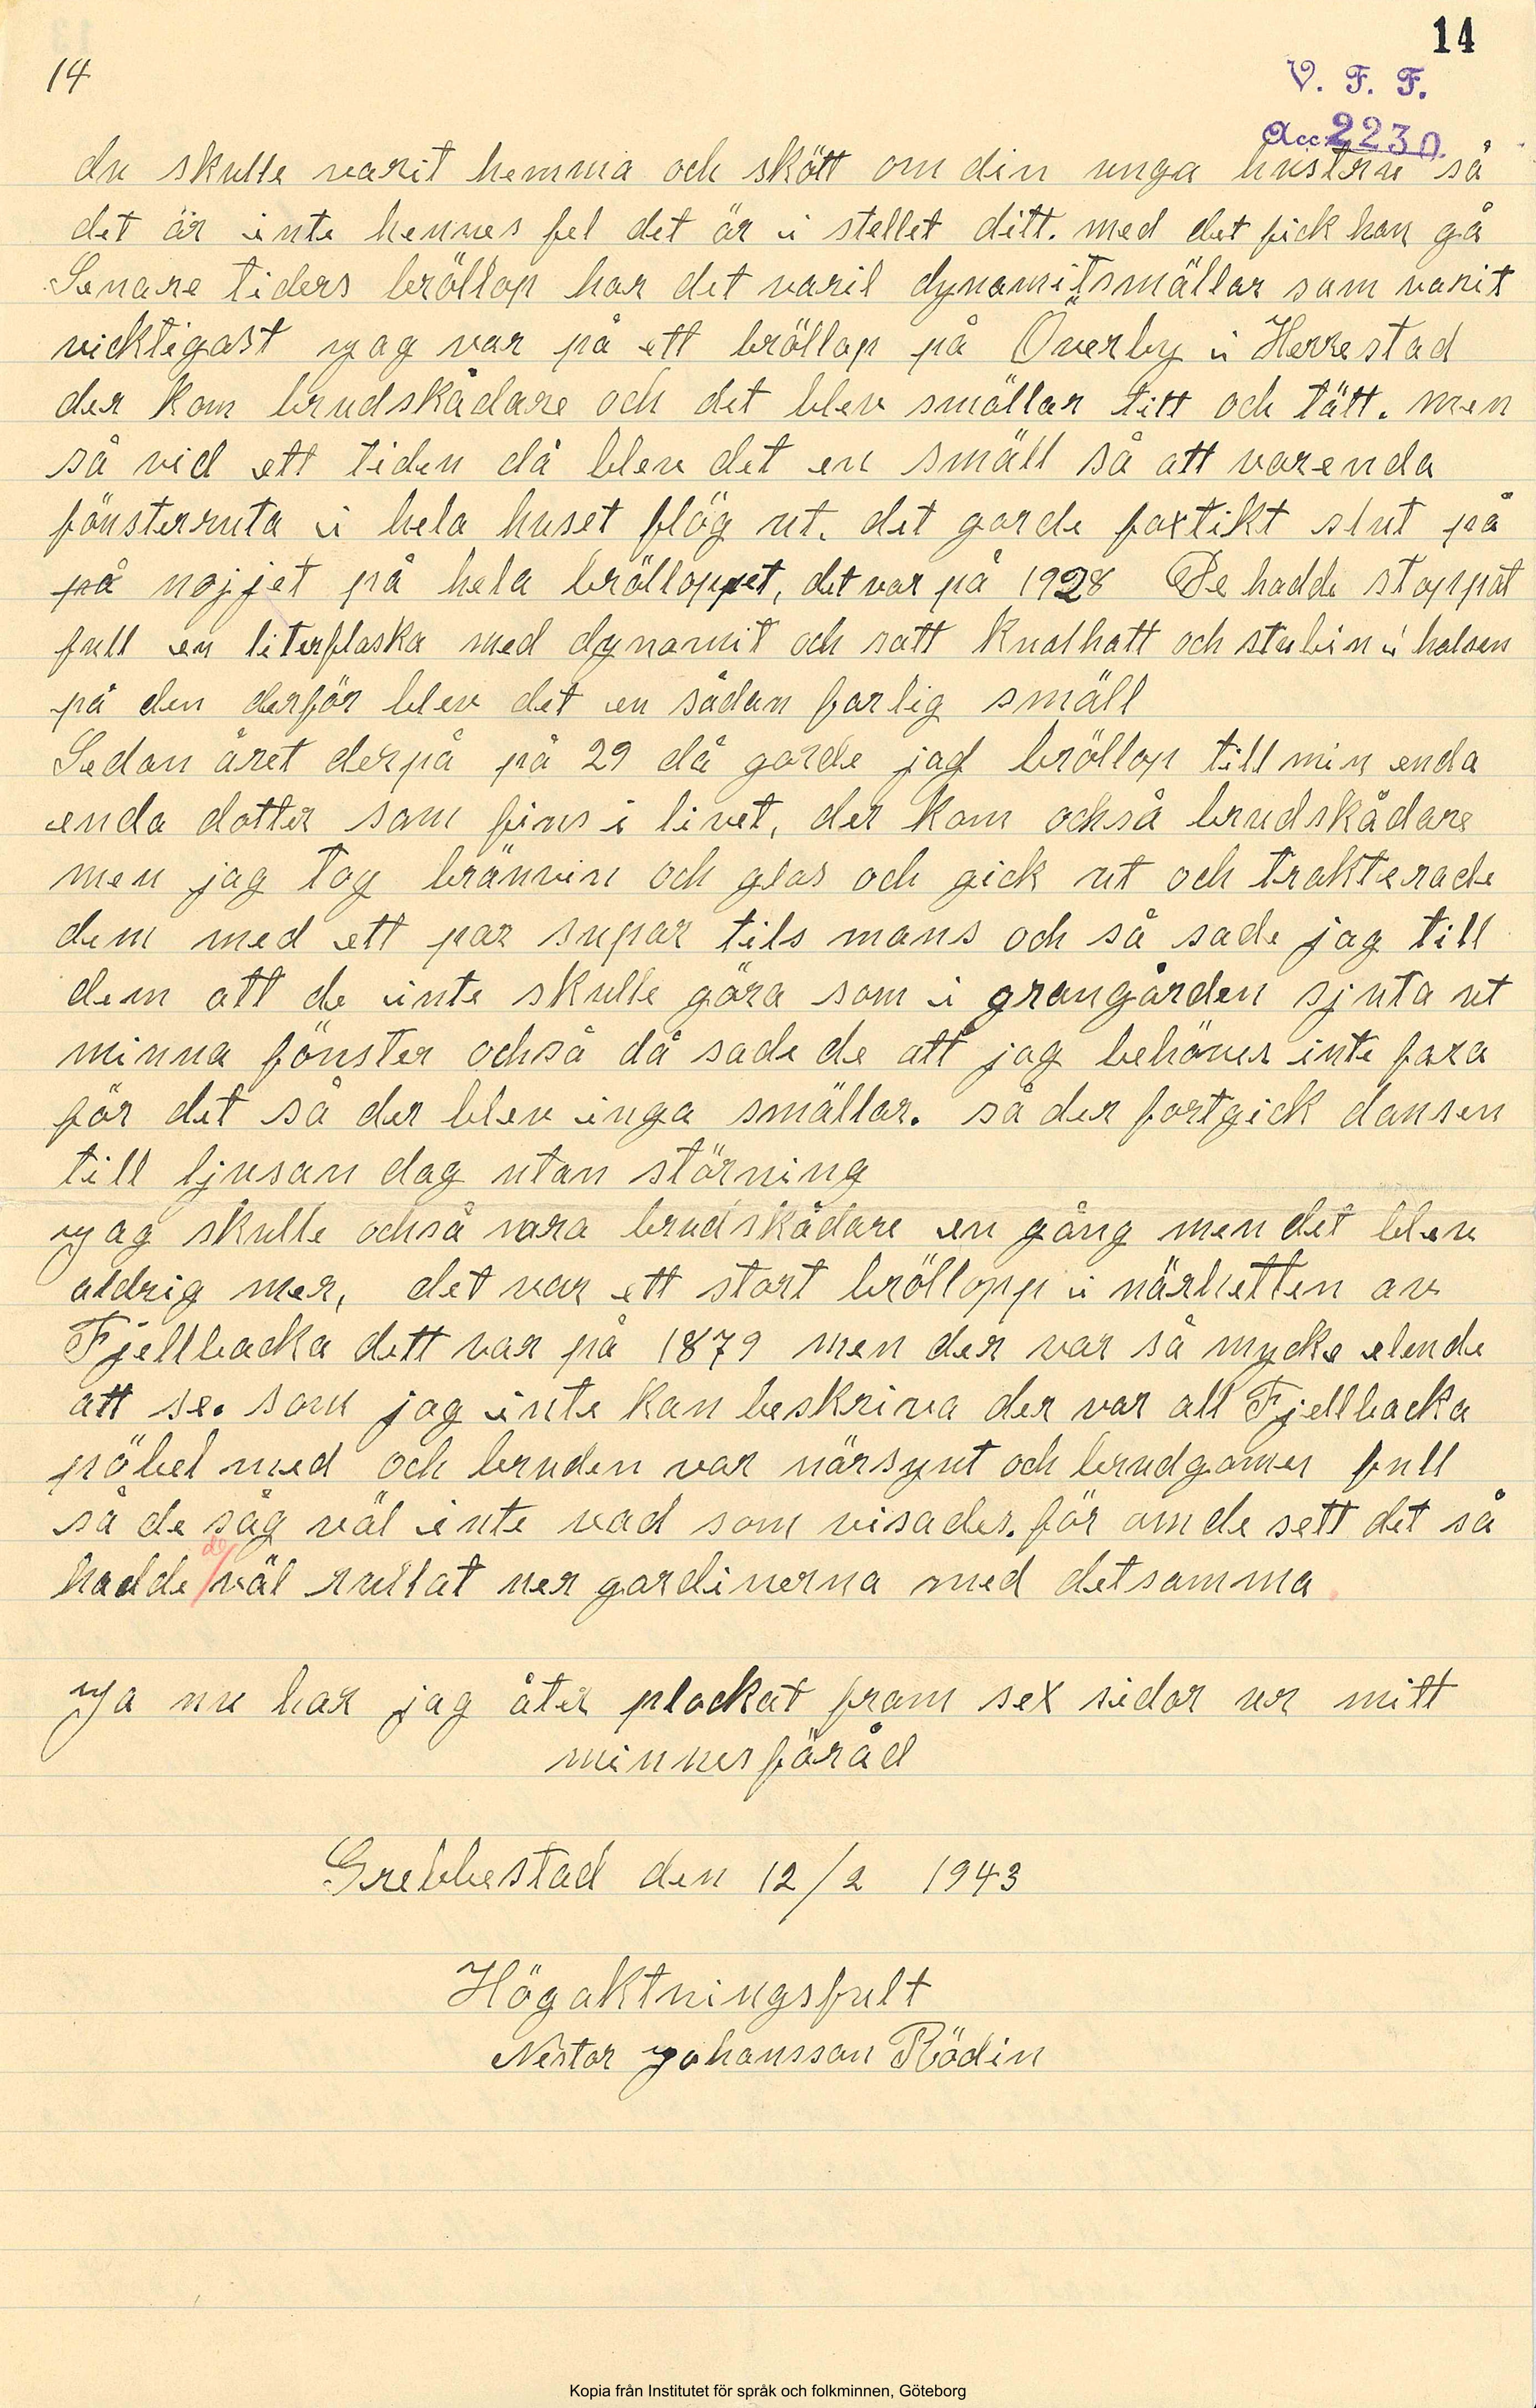 14
14
V. F. F.
Acc 2230
du skulle varit hemma och skött om din unga hustru så
det är inte hennes fel det är i stellet ditt. med det fick han gå
Senare tiders bröllop har det varit dynamitsmällar som varit
vicktigast jag var på ett bröllop på Överby i Herrestad
der kom brudskådare och det blev smällar titt och tätt. men
så vid ett tiden då blev det en smäll så att varenda
fönsterruta i hela huset flög ut. det gorde faxtikt slut på
på nojjet på hela brölloppet, det var på 1928 De hadde stoppat
full en literflaska med dynamit och satt knalhatt och stubin i halsen
på den derför blev det en sådan farlig smäll
Sedan året derpå på 29 då gorde jag bröllop till min enda
enda dotter som fins i livet, der kom också brudskådare
men jag tog bränvin och glas och gick ut och trakterade
dem med ett par supar tils mans och så sade jag till
dem att de inte skulle göra som i grangården sjuta ut
minna fönster också då sade de att jag behöver inte fara
för det så der blev inga smällar. så der fortgick dansen
till ljusan dag utan störning
jag skulle också vara brudskådare en gång men det blev
aldrig mer, det var ett stort bröllopp i närhetten av
Fjellbacka dett var på 1879 men der var så mycke elende
att se. som jag inte kan beskriva der var all Fjellbacka
pöbel med och bruden var närsynt och brudgomen full
så de såg väl inte vad som visades. för om de sett det så
hadde de väl rullat ner gardinerna med detsamma.
Ja nu har jag åter plockat fram sex sidor ur mitt
minnesföråd
Grebbestad den 12/2 1943
Högaktningsfult
Nestor Johansson Rödin
Kopia från Institutet för språk och folkminnen, Göteborg